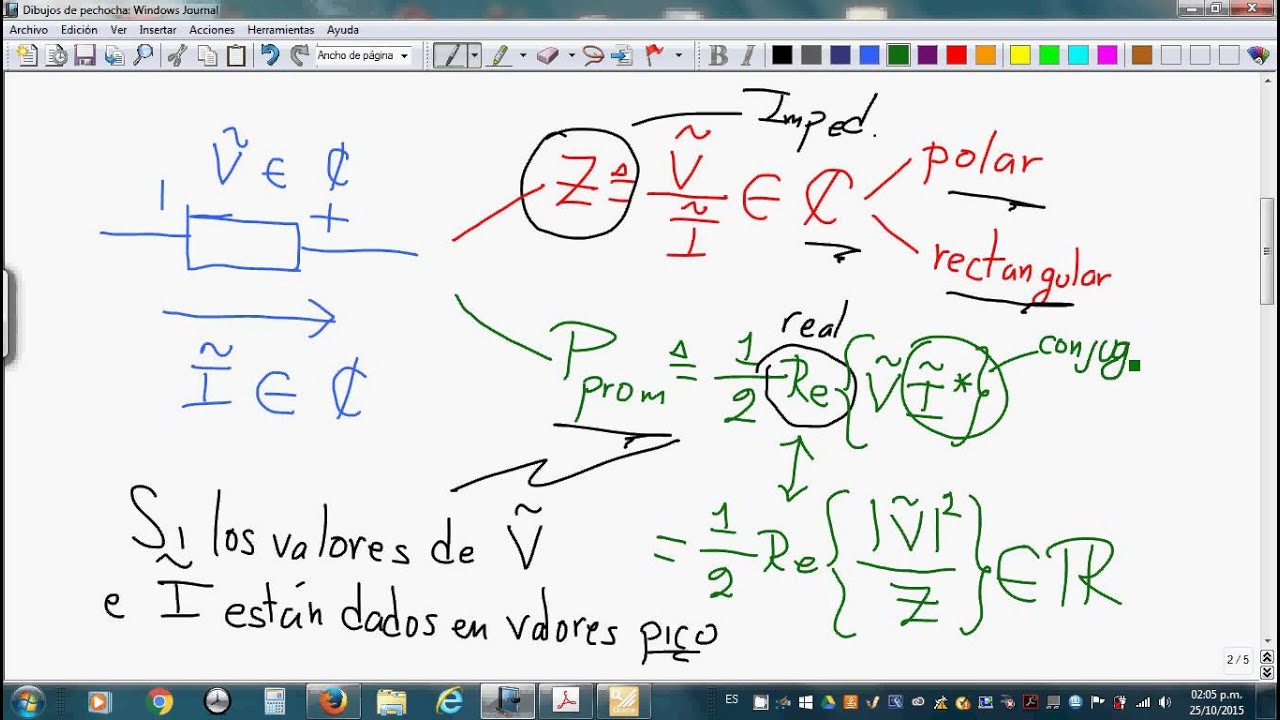 Dibujos de pechocha: Windows Journal
Archivo Edición Ver Insertar Acciones Herramientas Ayuda
Ancho de página
B I
Imped.
Ṽ ∈ ₵
Z ≜ Ṽ / Ĩ ∈ ₵
polar
rectangular
1 +
Ĩ ∈ ₵
real
P prom ≜ 1/2 Re { Ṽ Ĩ*
conjug.
= 1/2 Re { |Ṽ|² / Z } ∈ ℝ
Si los valores de Ṽ
e Ĩ están dados en valores pico
2 / 5
ES
02:05 p.m.
25/10/2015